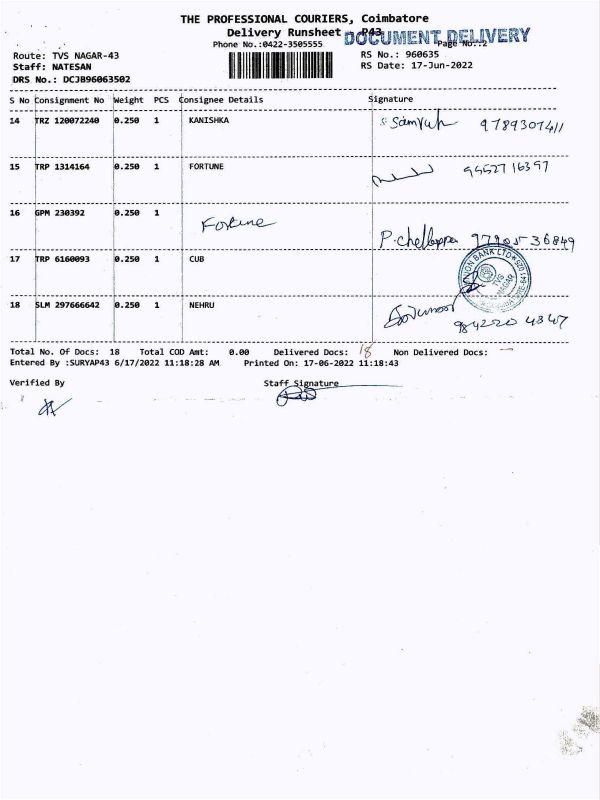 THE PROFESSIONAL COURIERS, Coimbatore
Delivery Runsheet - P43
DOCUMENT DELIVERY
Phone No.:0422-3505555
Page No.:2
Route: TVS NAGAR-43
RS No.: 960635
Staff: NATESAN
RS Date: 17-Jun-2022
DRS No.: DCJB96063502
S No Consignment No Weight PCS Consignee Details Signature
14 TRZ 120072240 0.250 1 KANISHKA 9789307411
15 TRP 1314164 0.250 1 FORTUNE 9952716397
16 GPM 230392 0.250 1
Fortune
P. Chellappa 97905 36849
17 TRP 6160093 0.250 1 CUB
TVS NAGAR
18 SLM 297666642 0.250 1 NEHRU
984220 4347
Total No. Of Docs: 18 Total COD Amt: 0.00 Delivered Docs: 18 Non Delivered Docs: —
Entered By :SURYAP43 6/17/2022 11:18:28 AM Printed On: 17-06-2022 11:18:43
Verified By Staff Signature